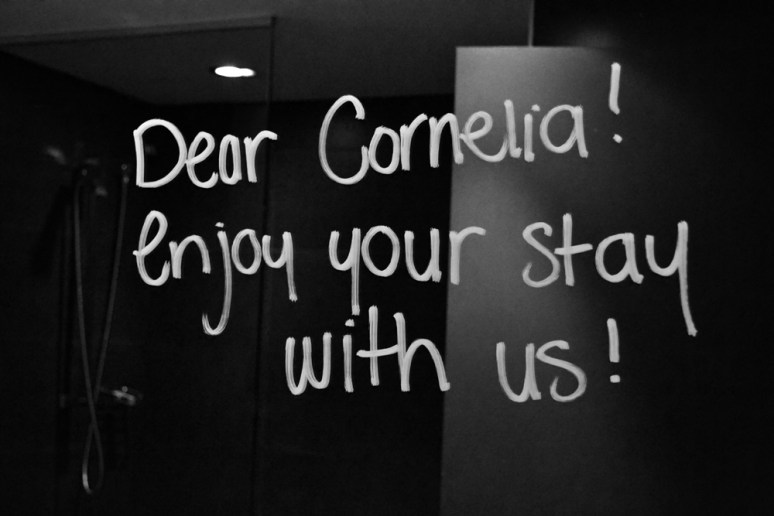 Dear Cornelia!
enjoy your stay
with us!